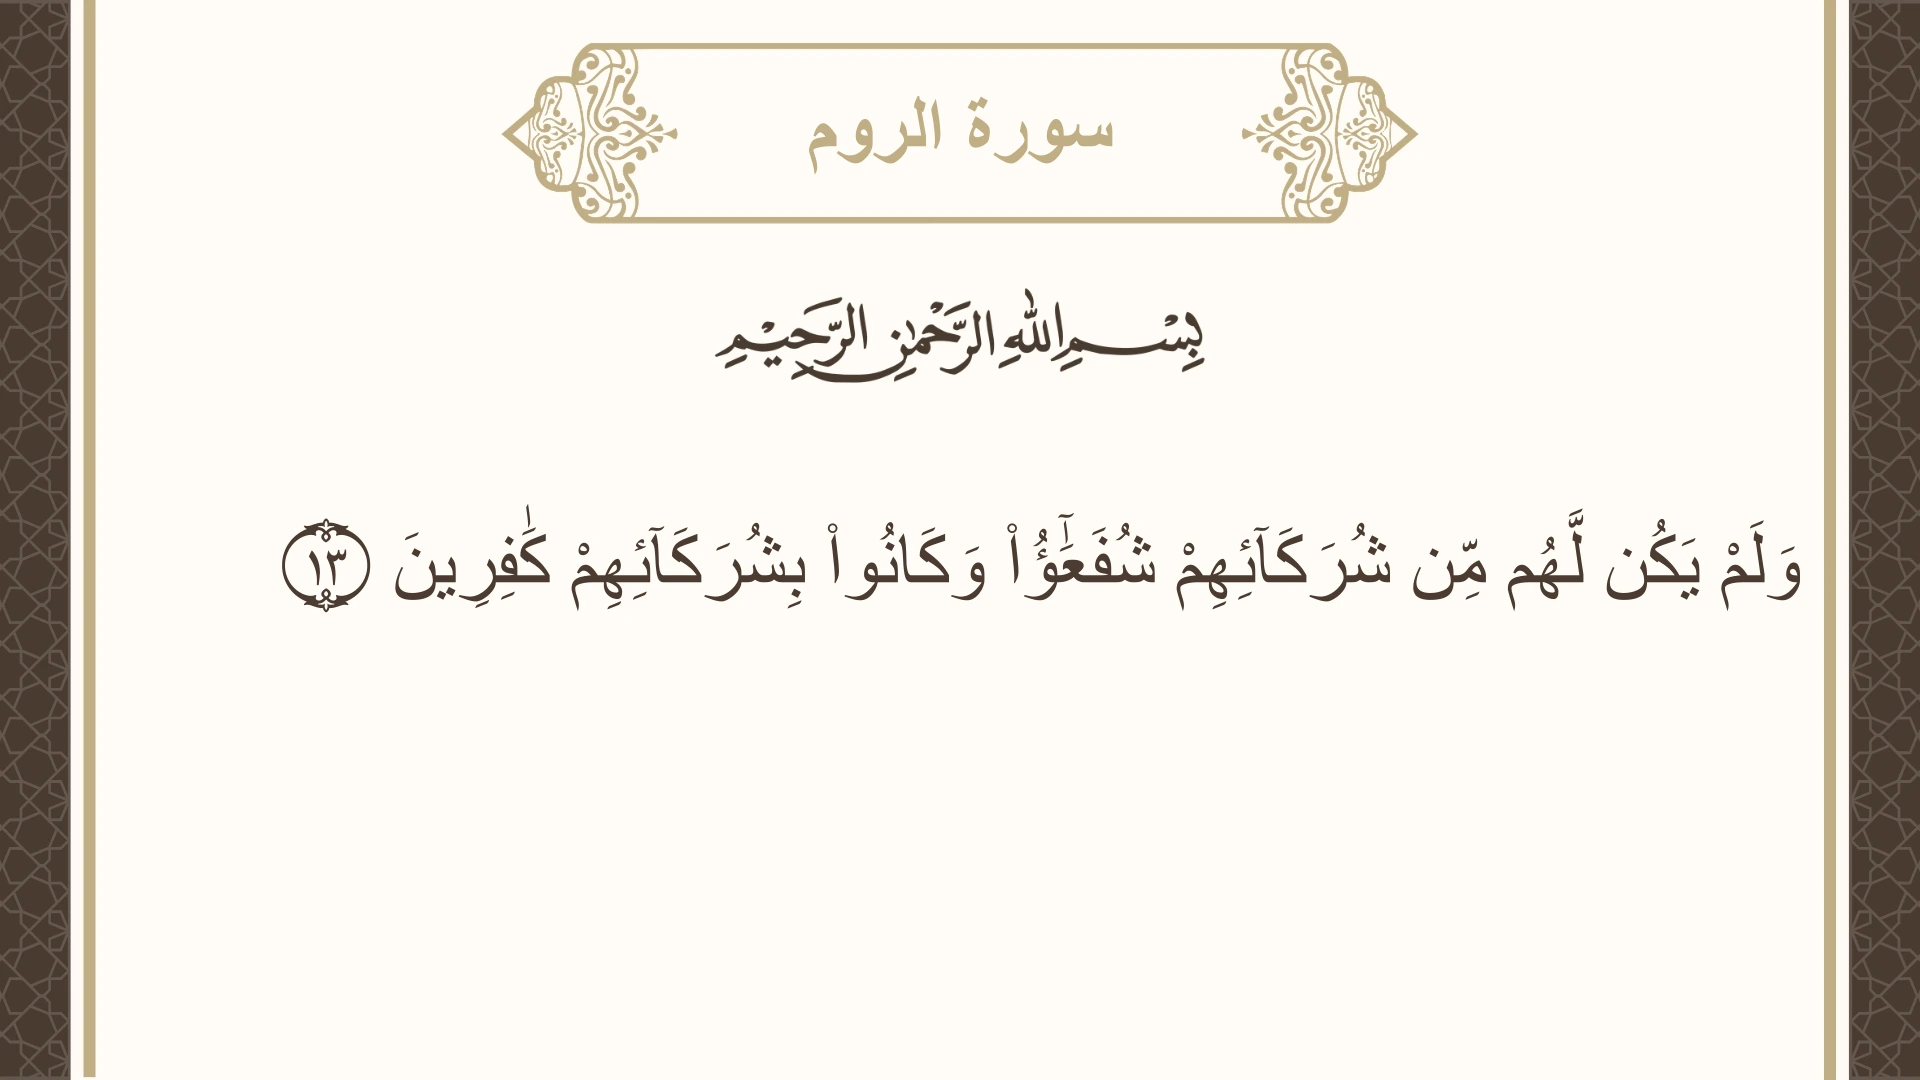 سورة الروم
بِسْمِ اللهِ الرَّحْمٰنِ الرَّحِيْمِ
وَلَمْ يَكُن لَّهُم مِّن شُرَكَآئِهِمْ شُفَعَٰٓؤُا۟ وَكَانُوا۟ بِشُرَكَآئِهِمْ كَٰفِرِينَ ١٣